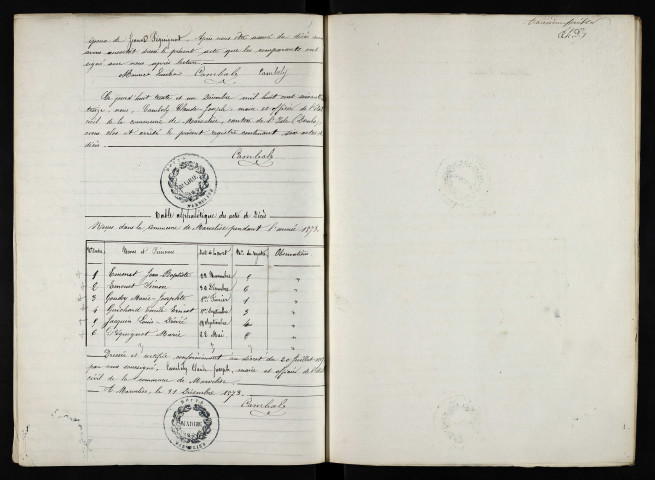 épouse de Jeand Piquignot. Après nous être assuré du décès nous
avons aussitôt dressé le présent acte que les comparants ont
signé avec nous après lecture.
Camboly
Ce jourd'huit trente et un Décembre mil huit cent soixante
treize, nous, Camboly Claude-Joseph, maire et officier de l'état
civil de la commune de Marvelise, canton de l'Isle (Doubs),
avons clos et arrêté le présent registre contenant six actes de
décès.
MAIRIE
DOUBS
MARVELISE
Table alphabétique des actes de Décès
dans la commune de Marvelise pendant l'année 1873.
Noms et Prénoms Date de la mort Nos du registre Observations
1 Emonet Jean-Baptiste 22 Novembre 5 "
2 Emonet Simon 30 Décembre 6 "
3 Marie-Josephte 1er Février 1 "
4 Guichard Emile Ernest 1er Septembre 3 "
5 Jacquin Louis-Désiré Septembre 4 "
6 Piquignot Marie 22 Mai 2 "
Dressée et certifiée conformément au décret du 20 Juillet
par nous soussigné, Camboly Claude Joseph, maire et officier de l'état
civil de la commune de Marvelise.
A Marvelise, le 31 Décembre 1873.
DOUBS
MAIRIE
MARVELISE